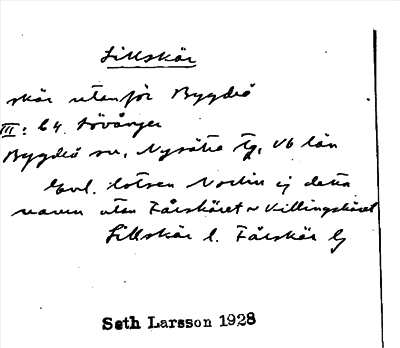 Sillskär
skär utanför Bygdeå
III: 64. Lövånger
Bygdeå sn, Nysätra tg, Vb län
Enl. lotsen Norlin ej detta
namn utan Fårskäret ~ Killingskäret
Sillskär l. Fårskär
Seth Larsson 1928